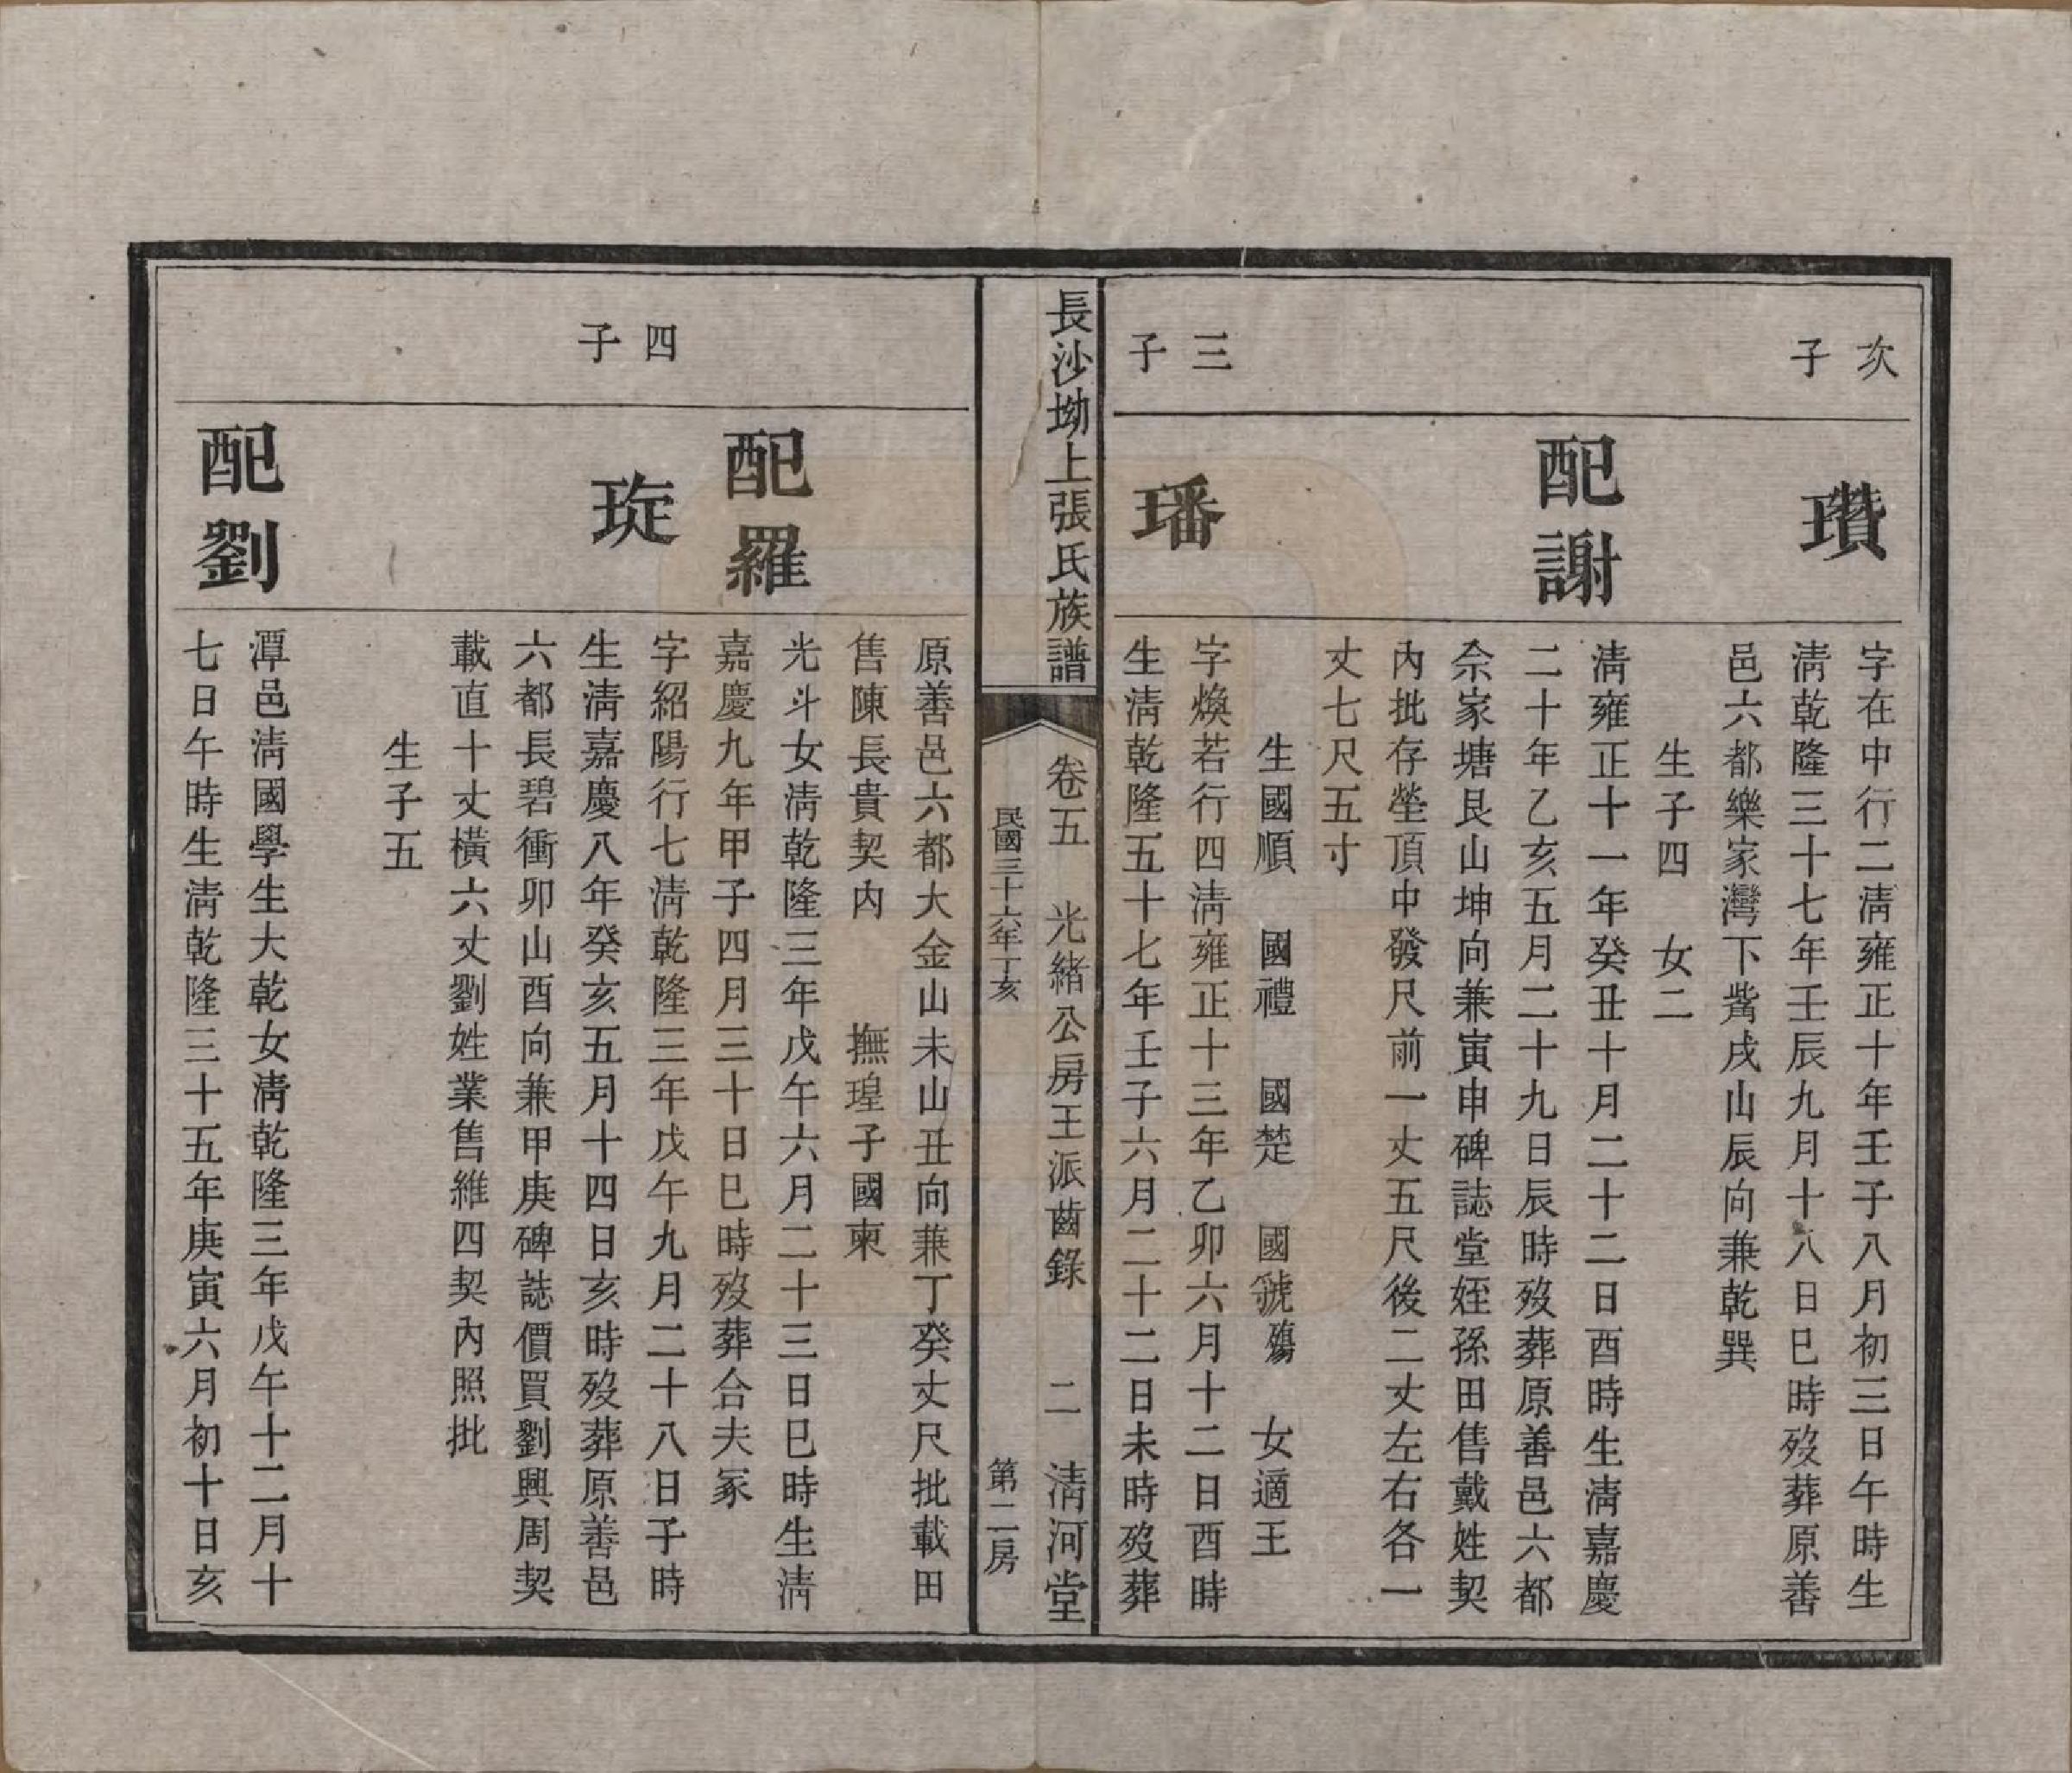 次子
瓚
字在中行二淸雍正十年壬子八月初三日午時生
淸乾隆三十七年壬辰九月十八日巳時歿葬原善
邑六都樂家灣下觜戌山辰向兼乾巽
生子四 女二
配謝
淸雍正十一年癸丑十月二十二日酉時生淸嘉慶
二十年乙亥五月二十九日辰時歿葬原善邑六都
佘家塘艮山坤向兼寅申碑誌堂姪孫田售戴姓契
內批存塋頂中發尺前一丈五尺後二丈左右各一
丈七尺五寸
生國順 國禮 國楚 國虢殤 女適王
三子
璠
字煥若行四淸雍正十三年乙卯六月十二日酉時
生淸乾隆五十七年壬子六月二十二日未時歿葬
長沙坳上張氏族譜 卷五 光緒公房王派齒錄 二 淸河堂
民國三十六年丁亥 第二房
原善邑六都大金山未山丑向兼丁癸丈尺批載田
售陳長貴契內 撫瑝子國柬
配羅
光斗女淸乾隆三年戊午六月二十三日巳時生淸
嘉慶九年甲子四月三十日巳時歿葬合夫冢
四子
琁
字紹陽行七淸乾隆三年戊午九月二十八日子時
生淸嘉慶八年癸亥五月十四日亥時歿葬原善邑
六都長碧衝卯山酉向兼甲庚碑誌價買劉興周契
載直十丈橫六丈劉姓業售維四契內照批
生子五
配劉
潭邑淸國學生大乾女淸乾隆三年戊午十二月十
七日午時生淸乾隆三十五年庚寅六月初十日亥